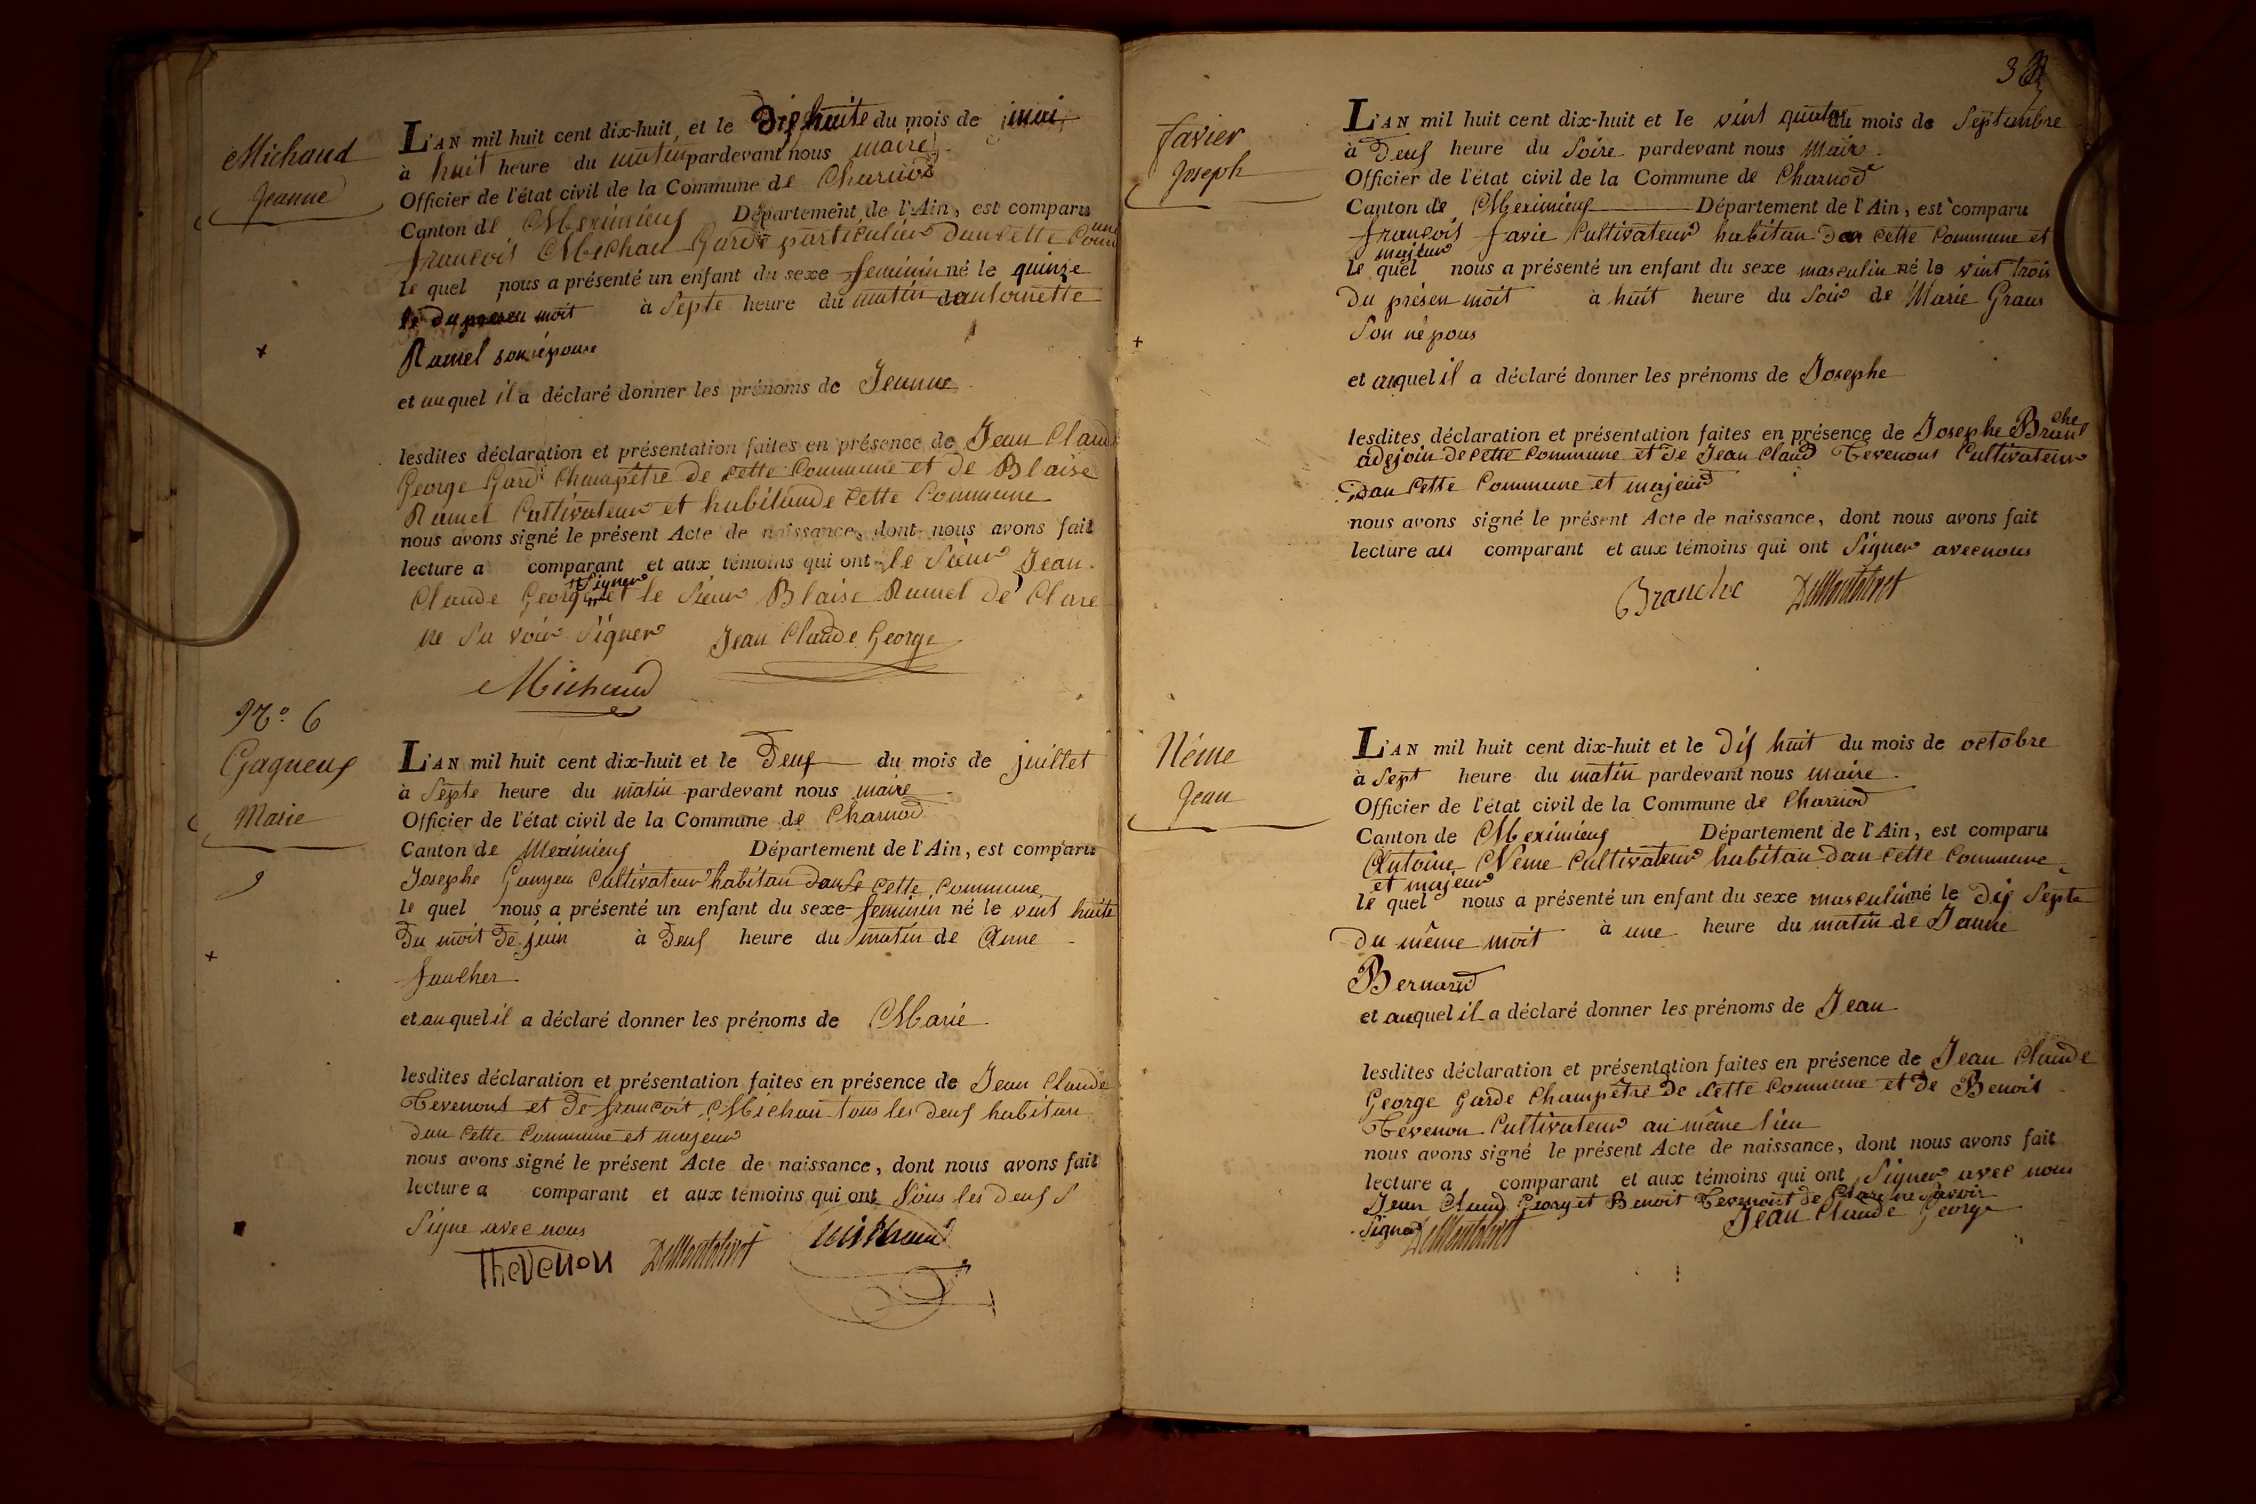 Michaud
Jeanne
L'AN mil huit cent dix-huit, et le Dix huite du mois de
à huit heure du matin pardevant nous maire
Officier de l'état civil de la Commune de Charnod
Canton de Meximieux Département de l'Ain, est comparu
francois Michau Garde particulier dan cette Commune
le quel nous a présenté un enfant du sexe feminin né le quinze
du presen moit à Septe heure du matin dantoinette
Ramel son népouse
et auquel il a déclaré donner les prénoms de Jeanne
lesdites déclaration et présentation faites en présence de Jean Claude
George Gard Champêtre de cette Commune et de Blaise
Ramel Cultivateur et habitande Cette Commune
nous avons signé le présent Acte de naissance, dont nous avons fait
lecture a comparant et aux témoins qui ont le Sieur Jean
Signer
Claude George et le Sieur Blaise Ramel de Clare
ne Sa voir Signer Jean Claude George
Michaud
N.° 6
Gagneux
Marie
L'AN mil huit cent dix-huit et le Deux du mois de juillet
à Septe heure du matin pardevant nous maire
Officier de l'état civil de la Commune de Charnod
Canton de Meximieux Département de l'Ain, est comparu
Josephe Ganyeu Cultivateur habitan dans cette Commune
le quel nous a présenté un enfant du sexe feminin né le vint huite
Du moit De juin à Deux heure du matin de Anne
faucher
et auquel il a déclaré donner les prénoms de Marie
lesdites déclaration et présentation faites en présence de Jean Claude
Tevenons et de francoit Michau tous les deux habitan
dan Cette Commune et majeur
nous avons signé le présent Acte de naissance, dont nous avons fait
lecture a comparant et aux témoins qui ont Sous les deux S
Signe avec nous
Thevenon Michaud
3
favier
Joseph
L'AN mil huit cent dix-huit et le vint quatre du mois de Septembre
à Deux heure du Soire pardevant nous Maire
Officier de l'état civil de la Commune de Charnod
Canton de Meximieux Département de l'Ain, est comparu
francois favie Cultivateur habitan dan cette Commune et
majeur
le quel nous a présenté un enfant du sexe masculin né le vint trois
Du présen moit à huit heure du Soir de Marie Graus
Son népous
et auquel il a déclaré donner les prénoms de Josephe
lesdites déclaration et présentation faites en présence de Josephe Branche
adejoin de cette Commune et de Jean Claud Tevenons Cultivateur
Dan Cette Commune et majeur
nous avons signé le présent Acte de naissance, dont nous avons fait
lecture au comparant et aux témoins qui ont Signer avec nous
Branche
Néme
Jean
L'AN mil huit cent dix-huit et le Dix huit du mois de octobre
à Sept heure du matin pardevant nous maire
Officier de l'état civil de la Commune de Charnod
Canton de Meximieux Département de l'Ain, est comparu
Antoine Néme Cultivateur habitan dan Cette Commune
et majeur
le quel nous a présenté un enfant du sexe masculin né le Dix Septe
du même moit à une heure du matin de Janne
Bernard
et auquel il a déclaré donner les prénoms de Jean
lesdites déclaration et présentation faites en présence de Jean Claude
George Garde Champêtre De Cette Commune et de Benoit
Tévenon Cultivateur au même lieu
nous avons signé le présent Acte de naissance, dont nous avons fait
lecture a comparant et aux témoins qui ont Signer avec nous
Jean Claud Georg et Benoit Tevenont de Clare ne Savoir
Signer Jean Claude George